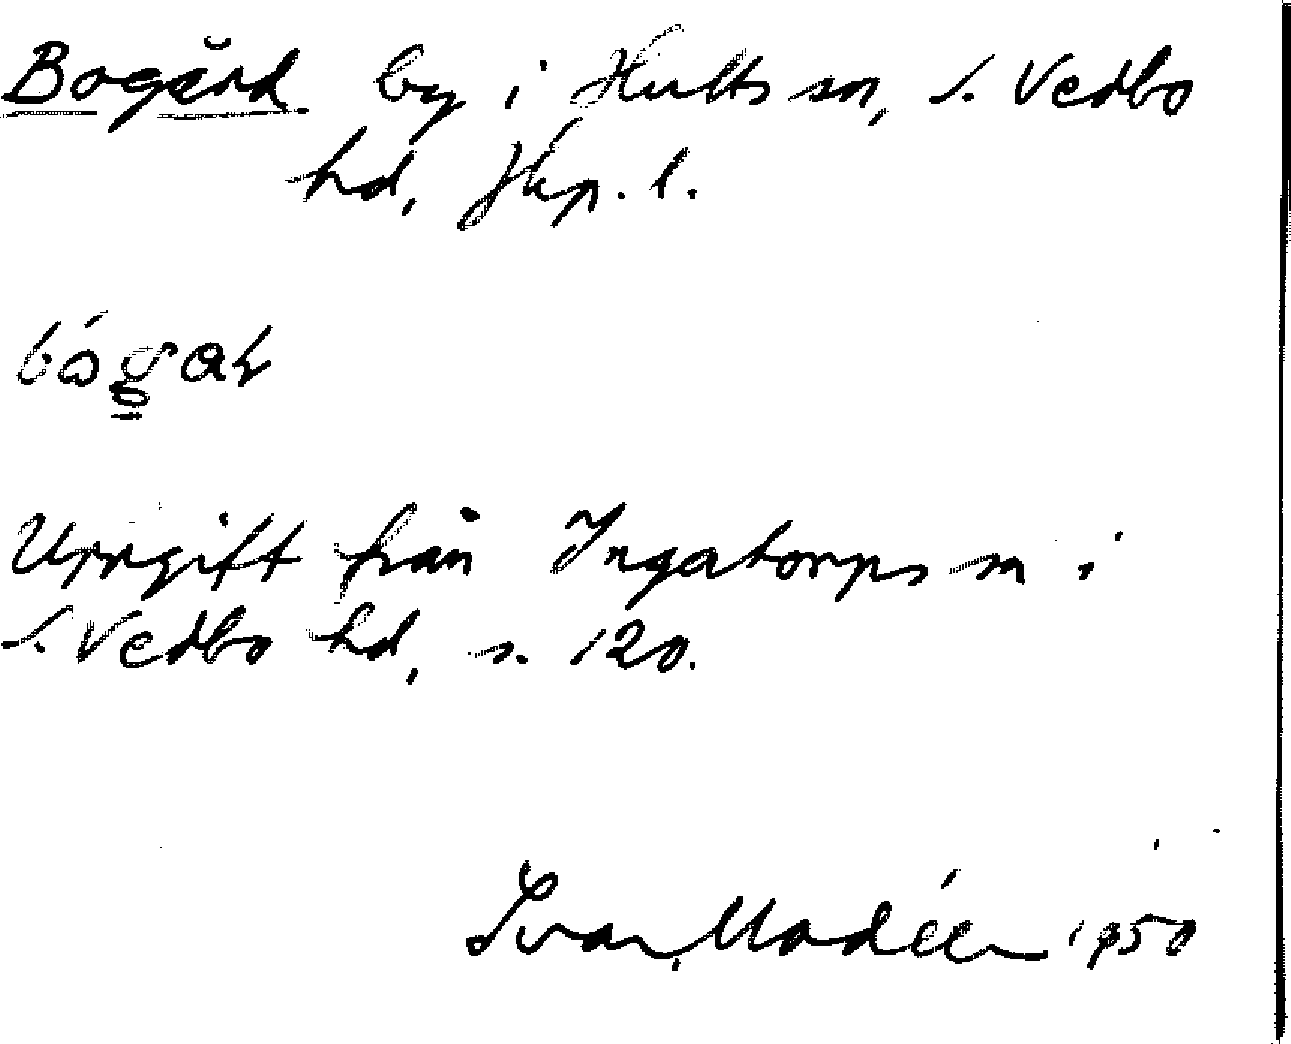 Bogård. by i Hults sn, S. Vedbo
hd, Jkp. l.
Uppgift från Ingatorps sn i
S. Vedbo hd, s. 120.
Ivar Modéer 1950